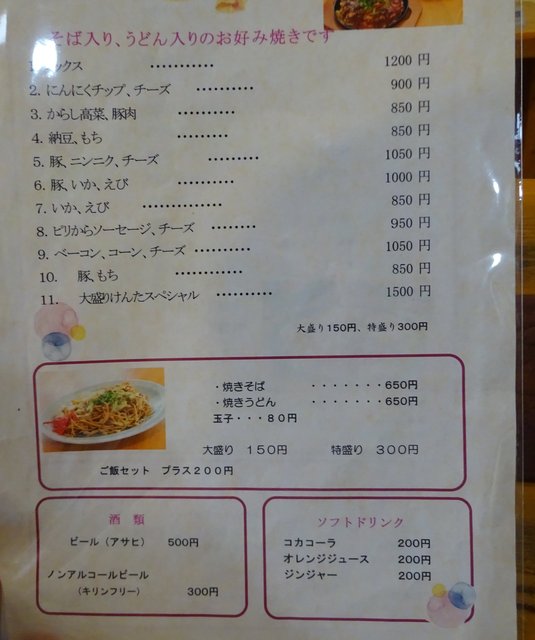 そば入り、うどん入りのお好み焼きです
ックス ・・・・・・・・・・・ 1200 円
2. にんにくチップ、チーズ ・・・・・・・・・・ 900 円
3. からし高菜、豚肉 ・・・・・・・・・・ 850 円
4. 納豆、もち ・・・・・・・・・ 850 円
5. 豚、ニンニク、チーズ ・・・・・・・・・ 1050 円
6. 豚、いか、えび ・・・・・・・・・・ 1000 円
7. いか、えび ・・・・・・・・・・・・・・ 850 円
8. ピリからソーセージ、チーズ ・・・・・・・・ 950 円
9. ベーコン、コーン、チーズ ・・・・・・・・・・ 1050 円
10. 豚、もち ・・・・・・・・・・・・ 850 円
11. 大盛りけんたスペシャル ・・・・・・・・・・ 1500 円
大盛り150円、特盛り300円
・焼きそば ・・・・・・・650円
・焼きうどん ・・・・・・・650円
玉子・・・80円
大盛り 150円 特盛り 300円
ご飯セット プラス200円
酒 類
ビール(アサヒ) 500円
ノンアルコールビール
(キリンフリー) 300円
ソフトドリンク
コカコーラ 200円
オレンジジュース 200円
ジンジャー 200円